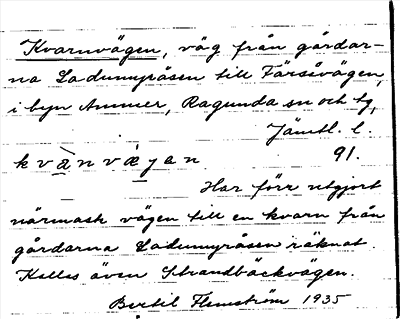 Kvarnvägen, väg från gårdar-
na Ladumyråsen till Färsåvägen,
i byn Ammer, Ragunda sn och tg,
Jämtl. l.
kvànvǽjan 91.
Har förr utgjort
närmast vägen till en kvarn från
gårdarna Ladumyråsen räknat.
Kallas även Strandbäckvägen.
Bertil Flemström 1935